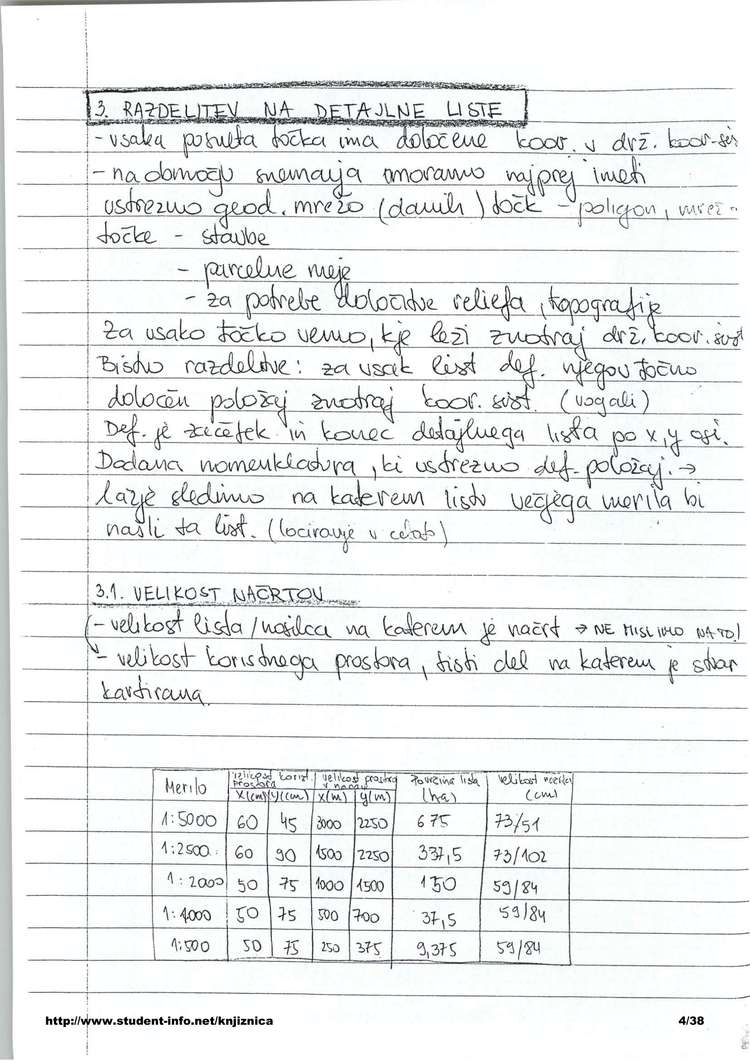 3. RAZDELITEV NA DETAJLNE LISTE
- vsaka posneta točka ima določene koor. v drž. koor. sis
- na območju snemanja moramo najprej imeti
ustrezno geod. mrežo (danih) točk - poligon, mrež.
točke - stavbe
- parcelne meje
- za potrebe določitve reliefa, topografije
Za vsako točko vemo, kje leži znotraj drž. koor. sist
Bistvo razdelitve: za vsak list def. njegov točno
določen položaj znotraj koor. sist. (vogali)
Def. je začetek in konec detajlnega lista po x, y osi.
Dodana nomenkladura, ki ustrezno def. položaj. →
lažje sledimo na katerem listu večjega merila bi
našli ta list. (lociranje v celoto)
3.1. VELIKOST NAČRTOV
- velikost lista / nosilca na katerem je načrt → NE MISLIMO NA TO!
- velikost koristnega prostora, tisti del na katerem je stvar
kartirana.
Merilo korist. prostora velikost prostora v naravi Površina lista (ha) velikost (cm)
x(cm) y(cm) x(m) y(m)
1:5000 60 45 3000 2250 675 73/51
1:2500 60 90 1500 2250 337,5 73/102
1:2000 50 75 1000 1500 150 59/84
1:1000 50 75 500 700 37,5 59/84
1:500 50 75 250 375 9,375 59/84
http://www.student-info.net/knjiznica 4/38